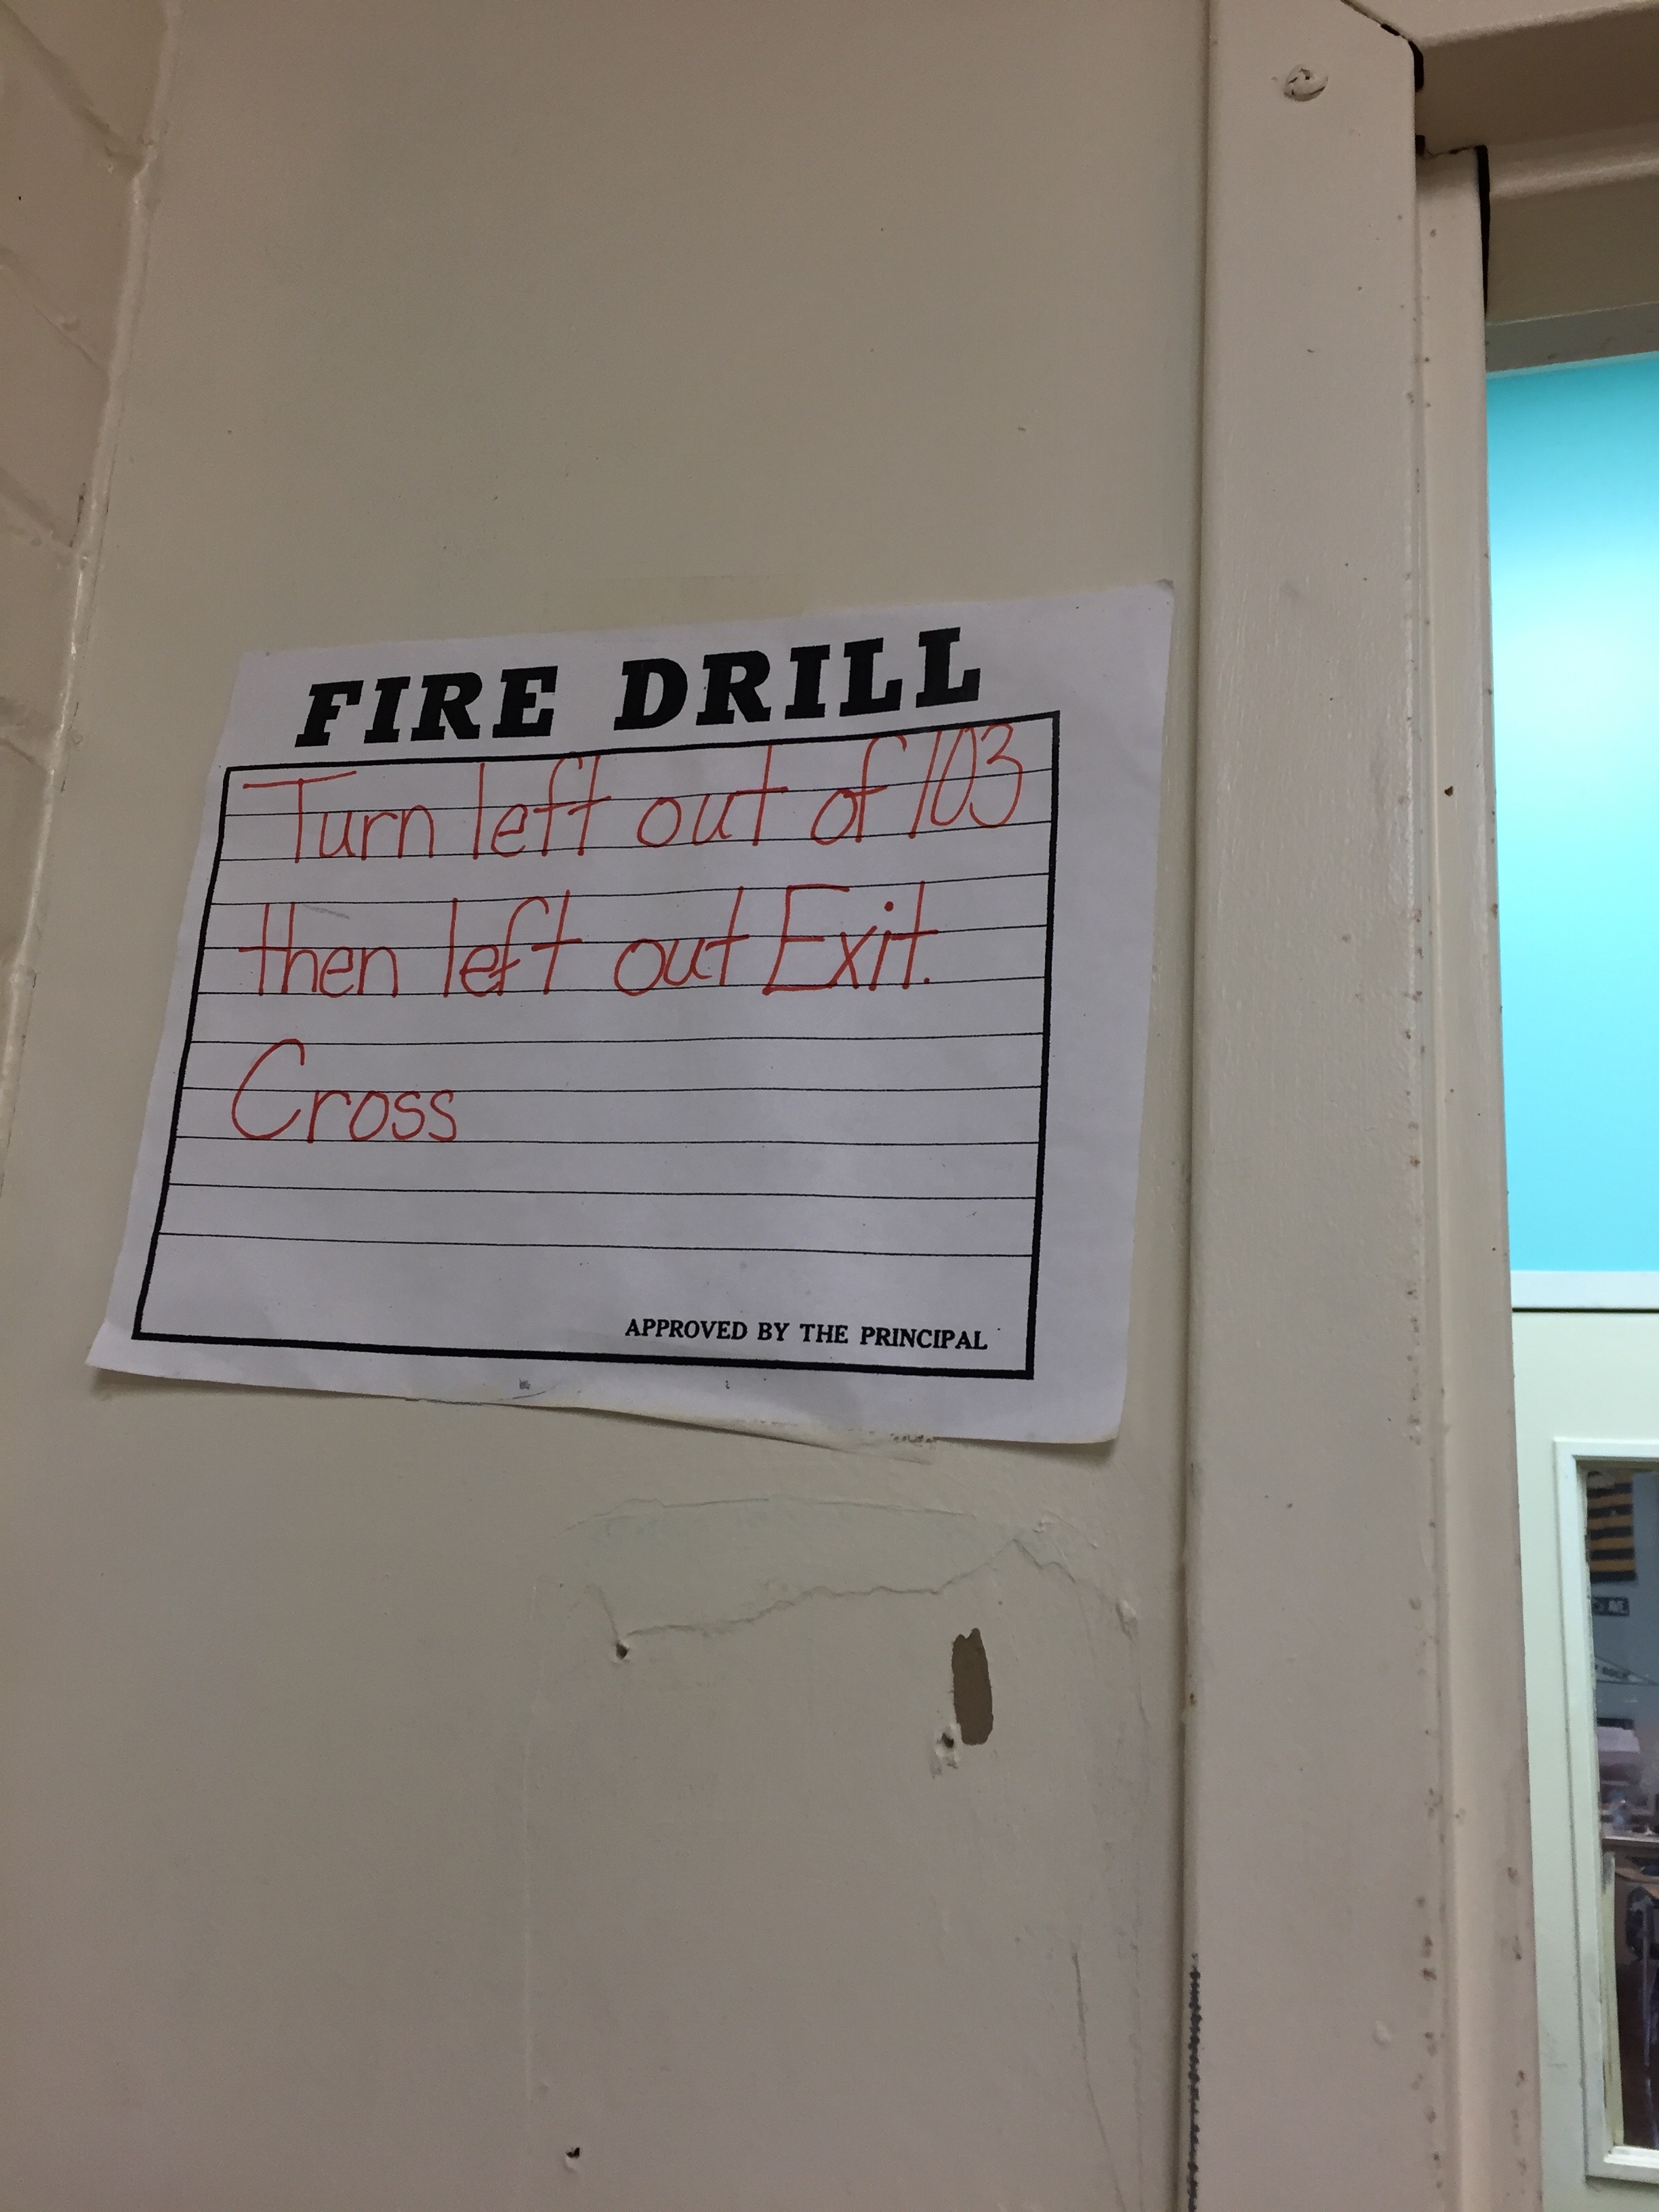 FIRE DRILL
Turn left out of 103
then left out Exit.
Cross
APPROVED BY THE PRINCIPAL